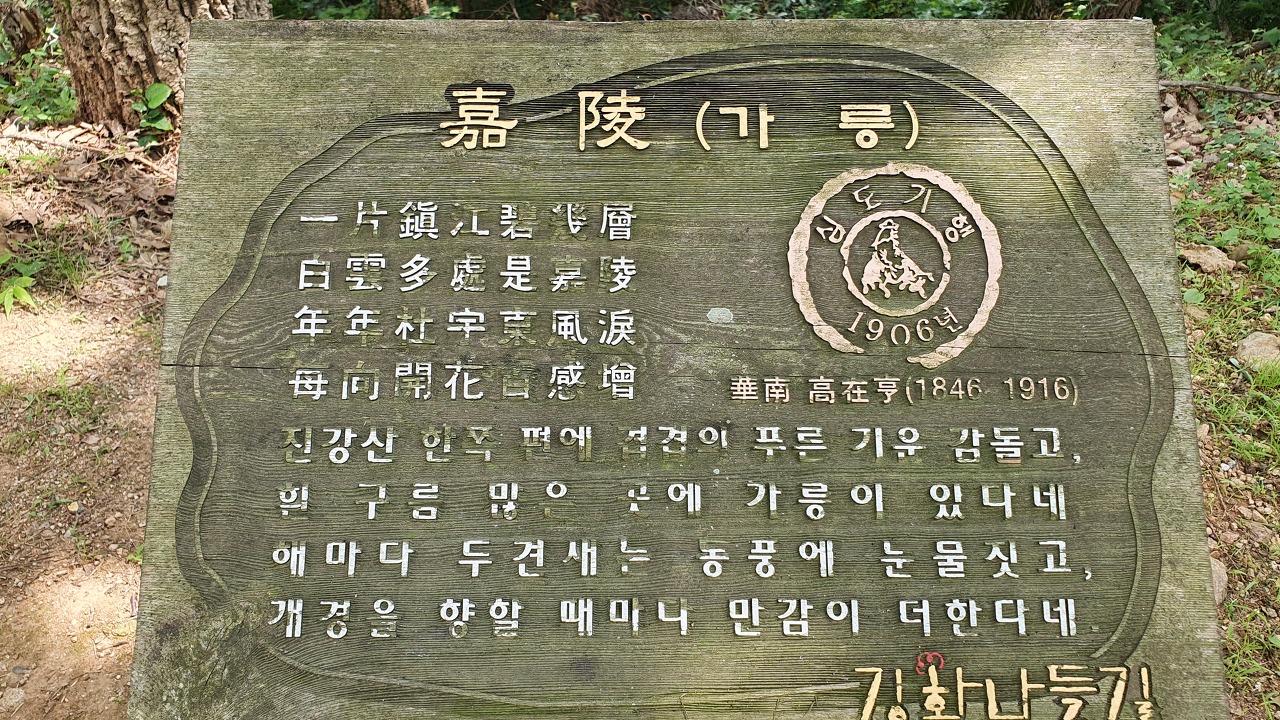 嘉 陵 (가 릉)
심도기행
1906년
一片鎭江碧幾層
白雲多處是嘉陵
年年杜宇東風淚
每向開花百感增
華南 高在亨(1846-1916)
진강산 한쪽 편에 겹겹의 푸른 기운 감돌고,
흰 구름 많은 곳에 가릉이 있다네
해마다 두견새는 동풍에 눈물짓고,
개경을 향할 때마다 만감이 더한다네.
강화나들길